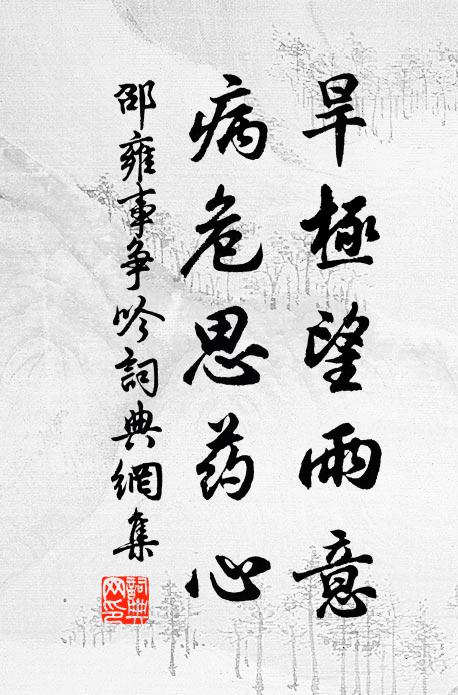 旱極望雨意
病危思药心
邵雍事爭吟詞典網集
詞典网印